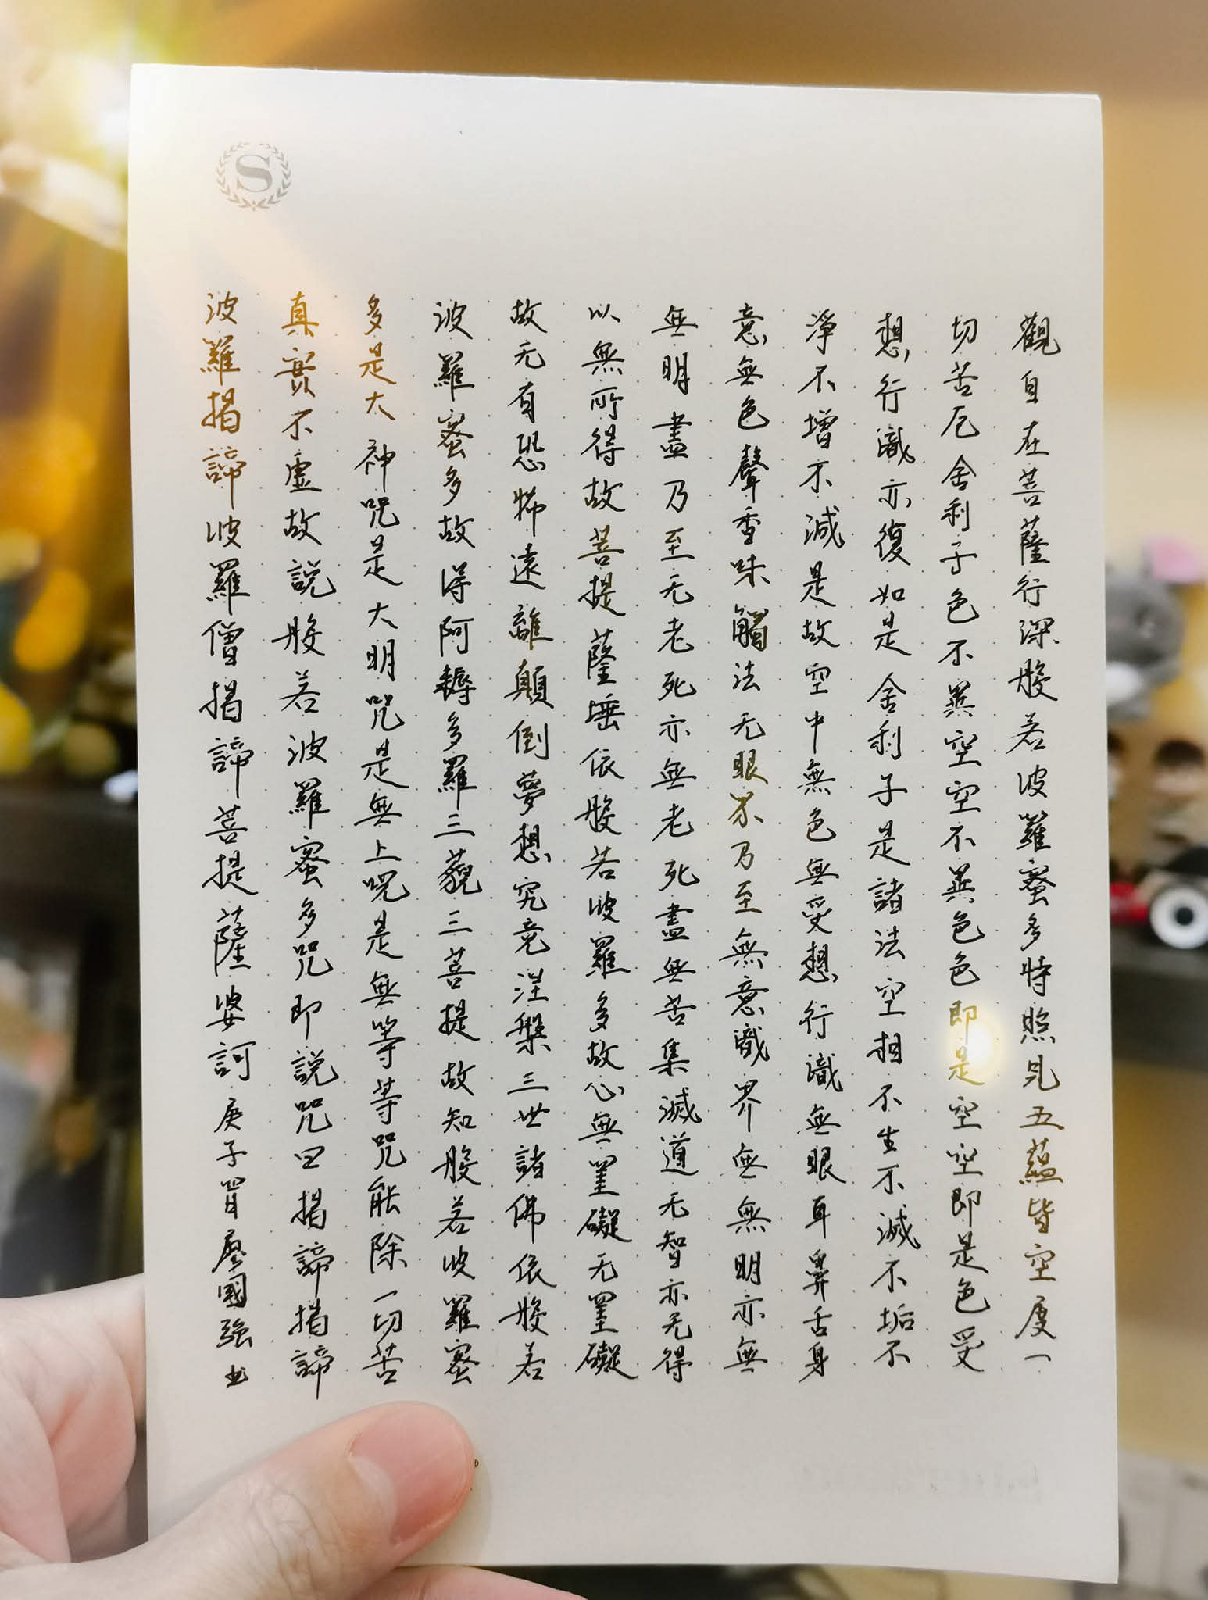 S
觀自在菩薩行深般若波羅蜜多時照見五蘊皆空度一
切苦厄舍利子色不異空空不異色色即是空空即是色受
想行識亦復如是舍利子是諸法空相不生不滅不垢不
淨不增不減是故空中無色無受想行識無眼耳鼻舌身
意無色聲香味觸法无眼界乃至無意識界無無明亦無
無明盡乃至无老死亦無老死盡無苦集滅道无智亦无得
以無所得故菩提薩埵依般若波羅多故心無罣礙无罣礙
故无有恐怖遠離顛倒夢想究竟涅槃三世諸佛依般若
波羅蜜多故得阿耨多羅三藐三菩提故知般若波羅蜜
多是大神咒是大明咒是無上咒是無等等咒能除一切苦
真實不虛故說般若波羅蜜多咒即說咒曰揭諦揭諦
波羅揭諦波羅僧揭諦菩提薩婆訶庚子冒廖國強书